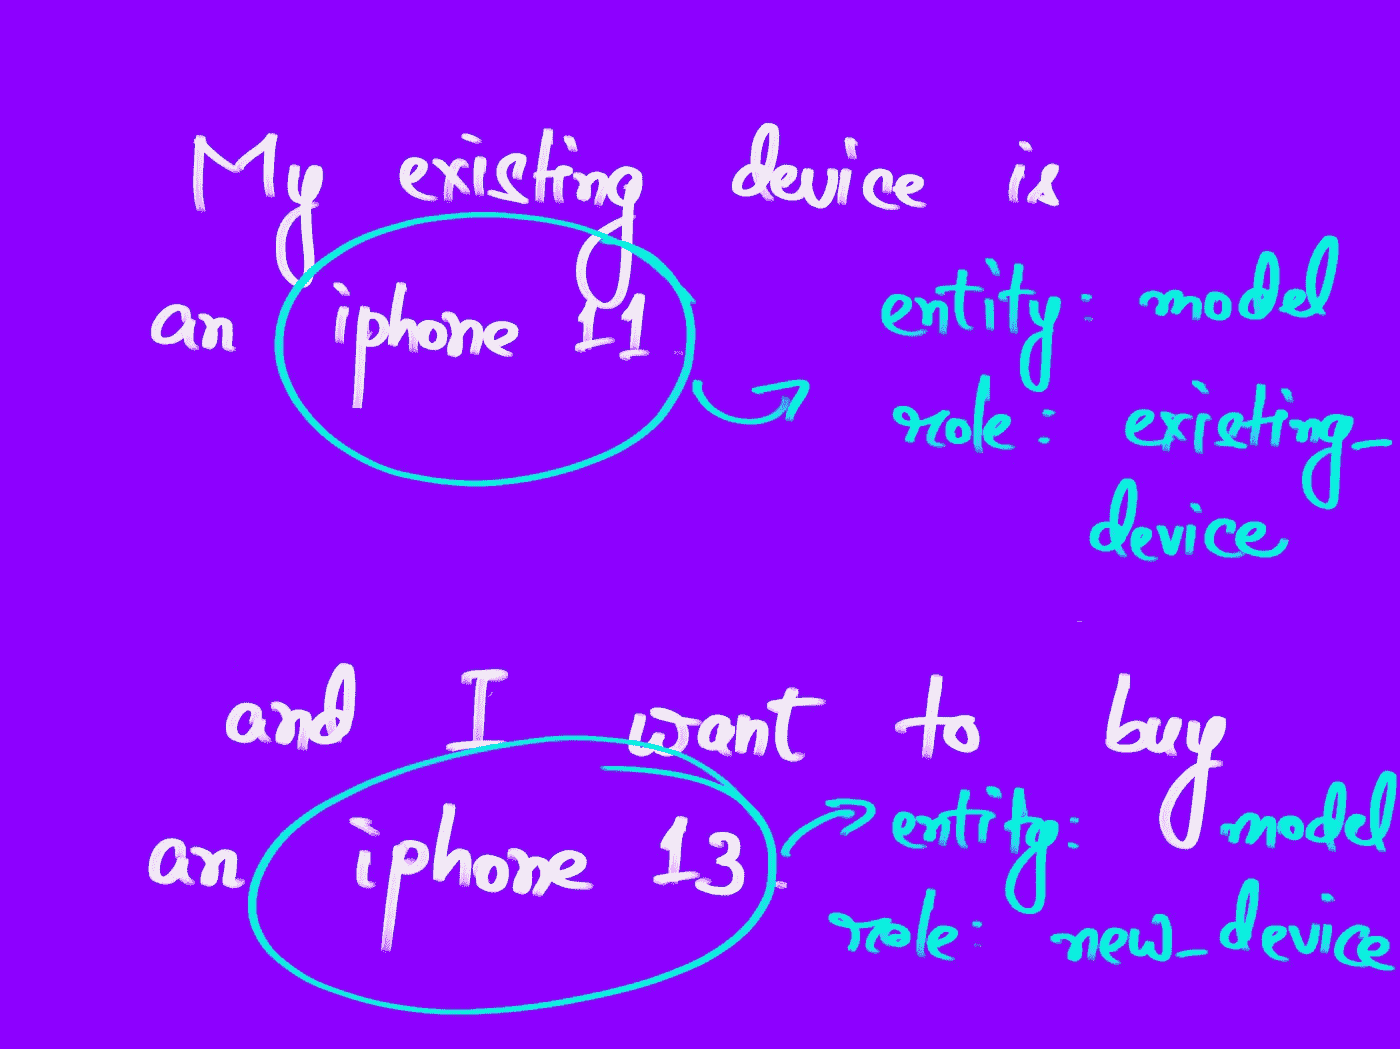 My existing device is
an iphone 11
entity: model
role: existing_
device
and I want to buy
an iphone 13.
entity: model
role: new_device